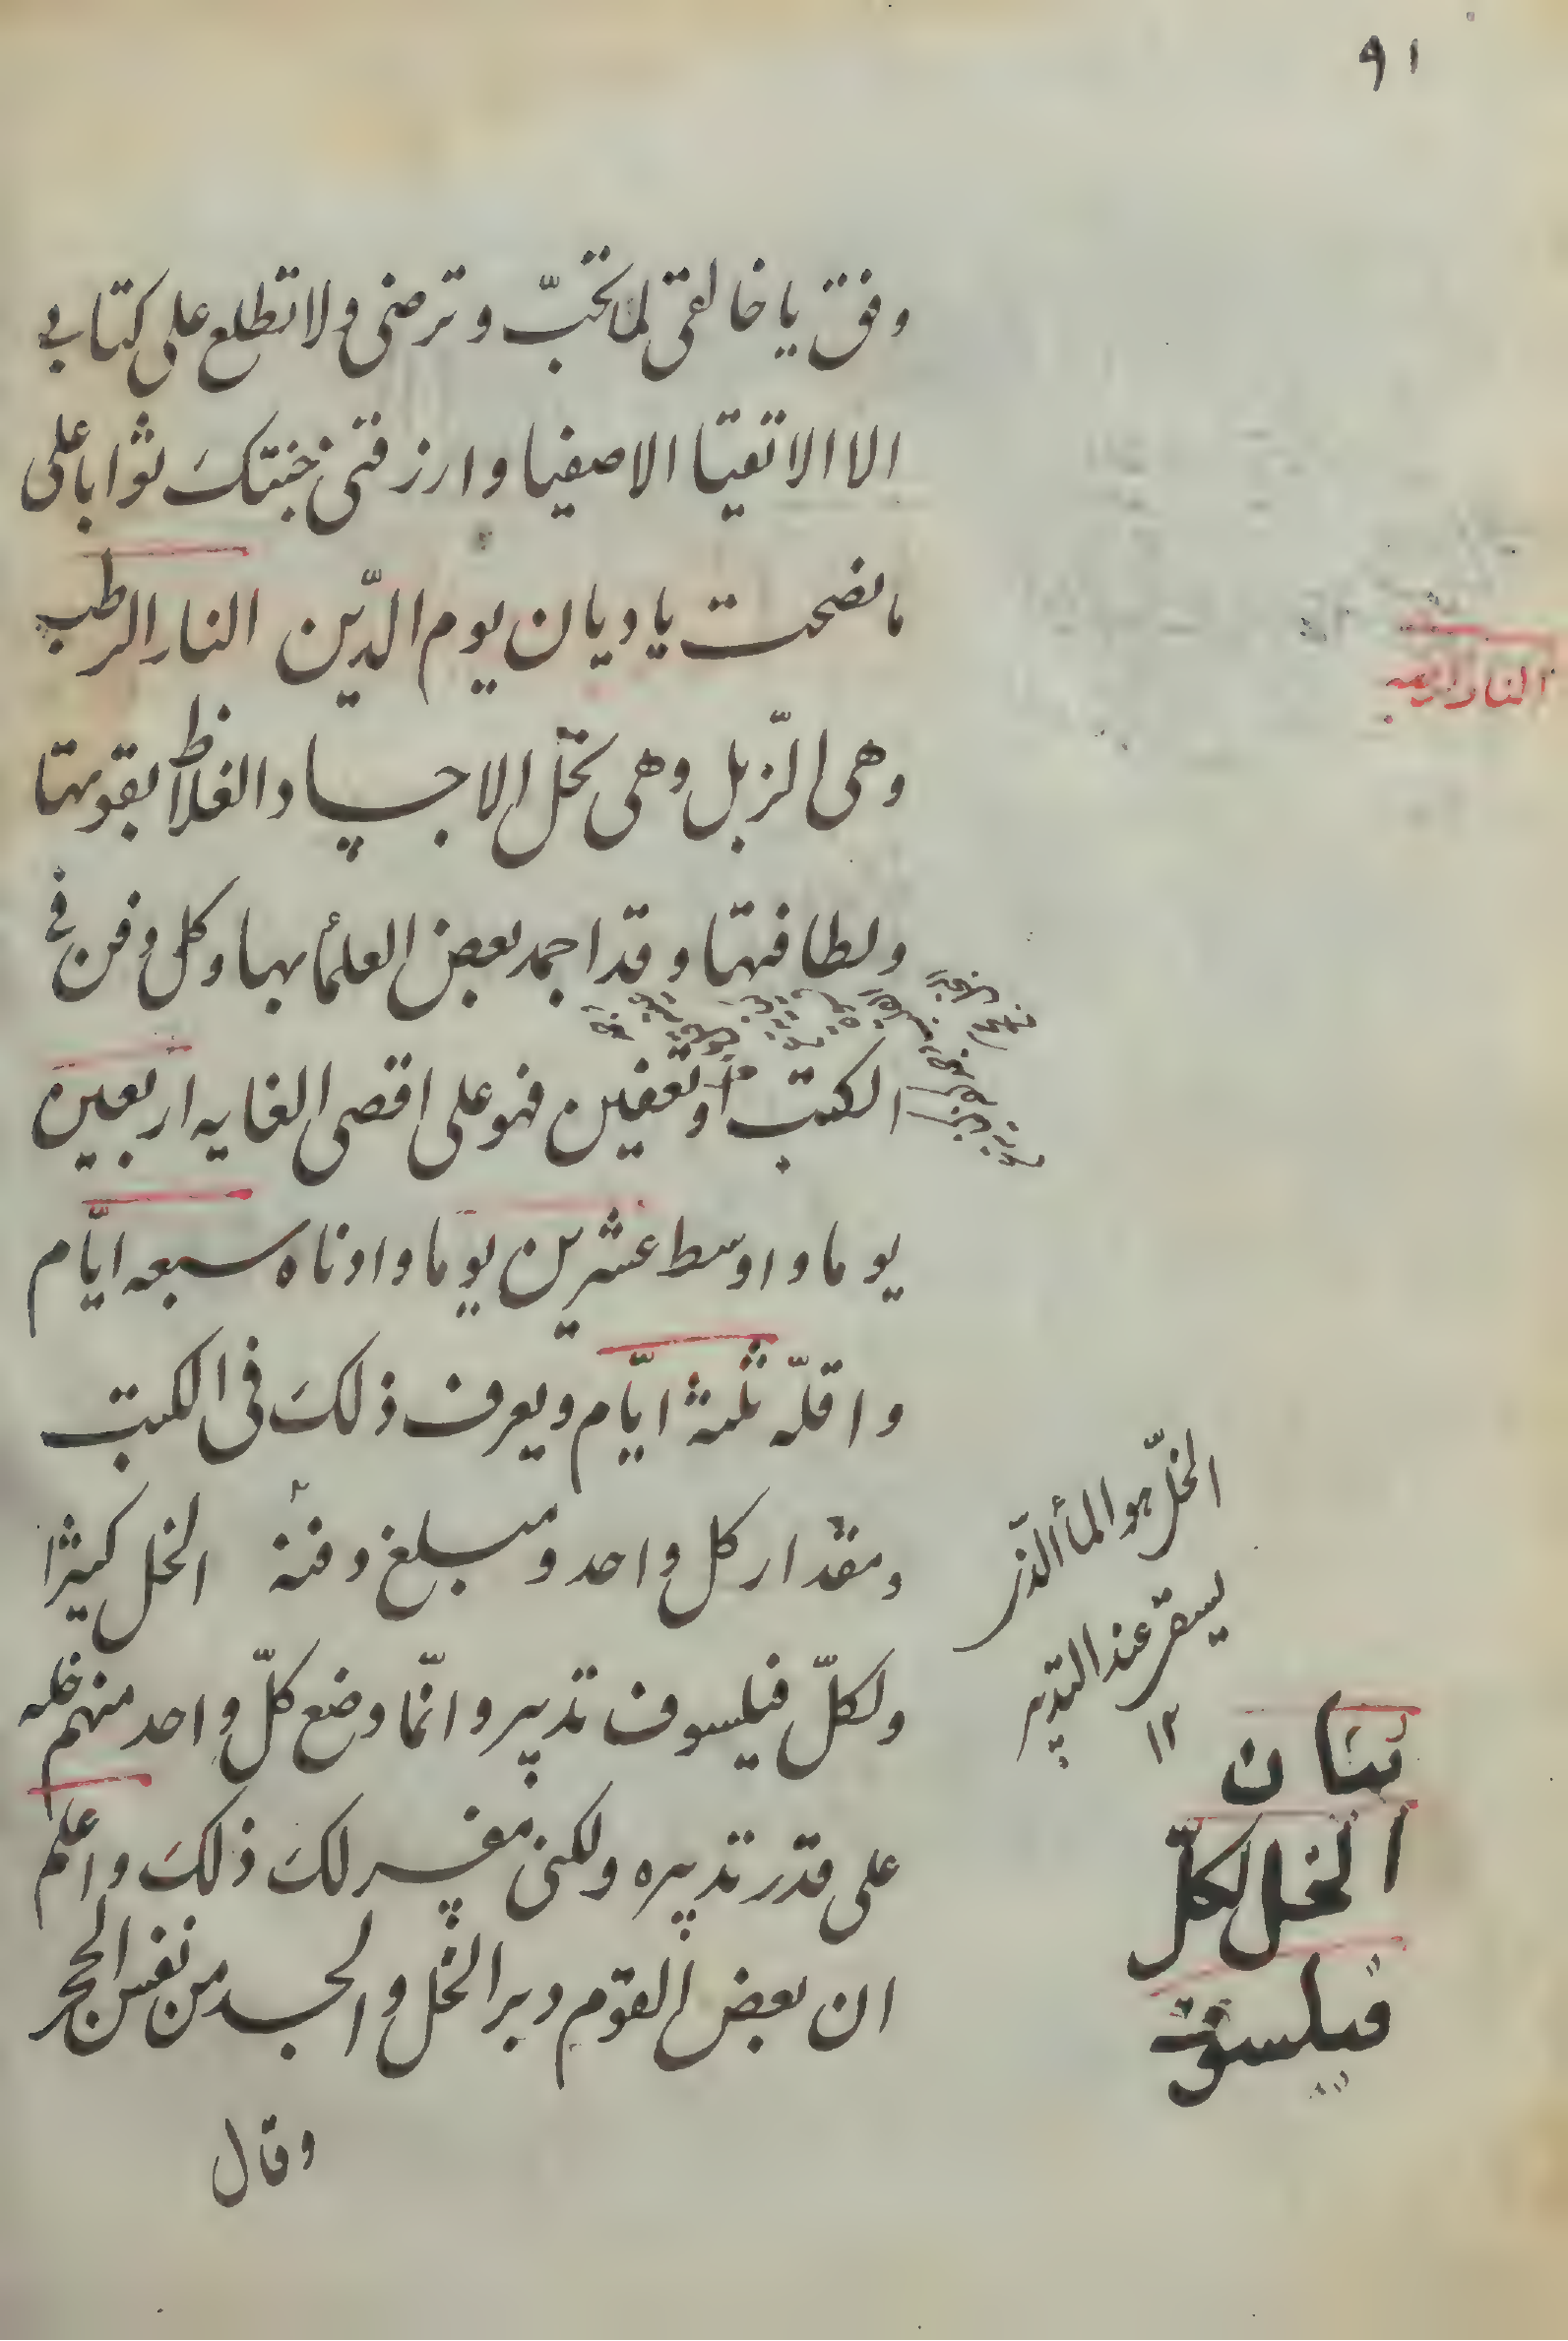 ٩١
وفق يا خالقى لما تحبّ وترضى ولا تطلع على كتابي
الا الاتقيا الاصفيا وارزقنى جنتكَ ثوابا على
ما نصحت يا ديان يوم الدّين النار الرطبه
وهى الزّبل وهى تحلّ الاجساد الغلاظ بقوتها
ولطافتها وقد اجمد بعض العلمأ بها وكل دفن في
الكتب او تعفين فهو على اقصى الغايه اربعين
يوما واوسط عشرين يوما وادناه سبعه ايّام
واقلّه ثلثة ايّام ويعرف ذلكَ فى الكتب
ومقدار كل واحد ومبلغ دفنه الخل كثيرا
ولكلّ فيلسوف تدبير وانّما وضع كلّ واحد منهم خله
على قدر تدبيره ولكنى مفسر لكَ ذلكَ واعلم
ان بعض القوم دبر الخل والجسد من نفس الحجر
وقال
النار الرطبه
الخلّ هو المأ الذّى
يستقر عند التدبير
١٢
بيان
الخل لكلّ
فيلسوف